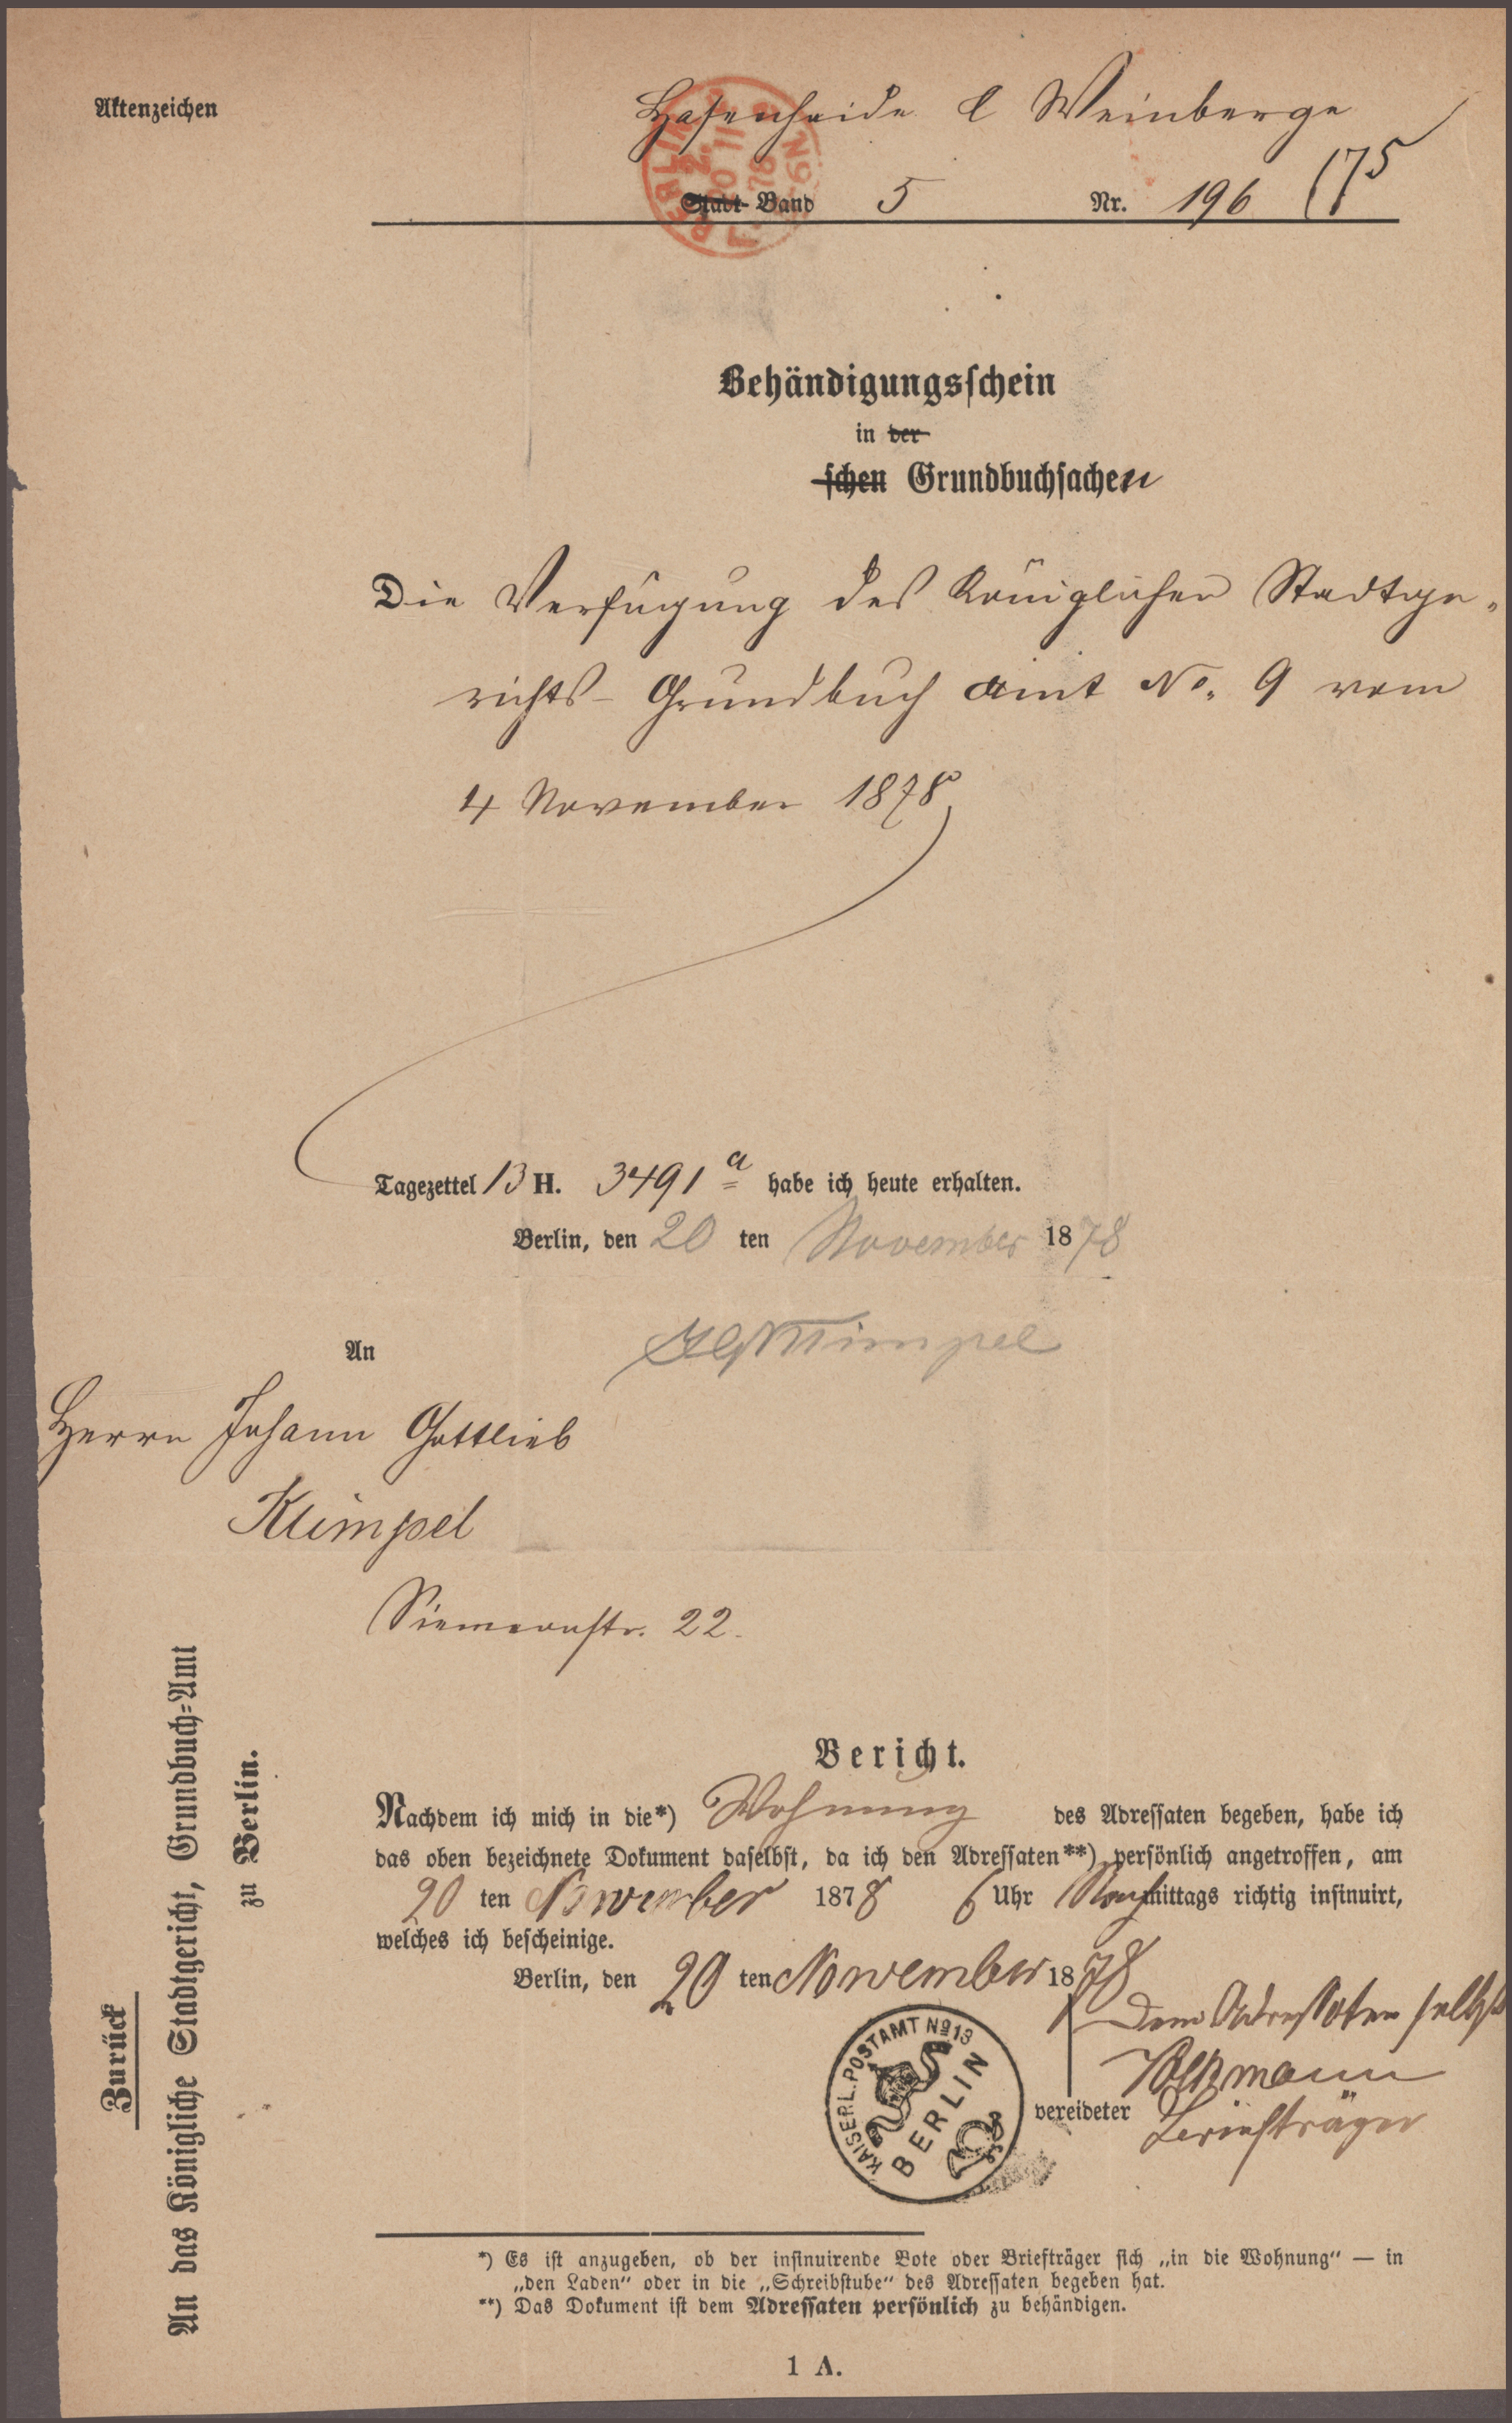 Aktenzeichen
Hasenheide & Weinberge
Stadt- Band 5 Nr. 196 (175
BERLIN
20 11
78
Behändigungsschein
in der
schen Grundbuchsachen
Die Verfügung des Königlichen Stadtge-
richts- Grundbuch amt No. 9 vom
4 November 1878
Tagezettel 13 H. 3491 a habe ich heute erhalten.
Berlin, den 20 ten November 1878
An
Herrn Johann Gottlieb
Klimpel
22.
Zurück
An das Königliche Stadtgericht, Grundbuch-Amt
zu Berlin.
Bericht.
Nachdem ich mich in die*) Wohnung des Adressaten begeben, habe ich
das oben bezeichnete Dokument daselbst, da ich den Adressaten**) persönlich angetroffen, am
20 ten November 1878 6 Uhr Nachmittags richtig insinuirt,
welches ich bescheinige.
Berlin, den 20 ten November 1878
Dem Adressaten selbst
KAISERL. POSTAMT No 13
BERLIN
vereideter Briefträger
*) Es ist anzugeben, ob der insinuirende Bote oder Briefträger sich „in die Wohnung" — in
„den Laden" oder in die „Schreibstube" des Adressaten begeben hat.
**) Das Dokument ist dem Adressaten persönlich zu behändigen.
1 A.